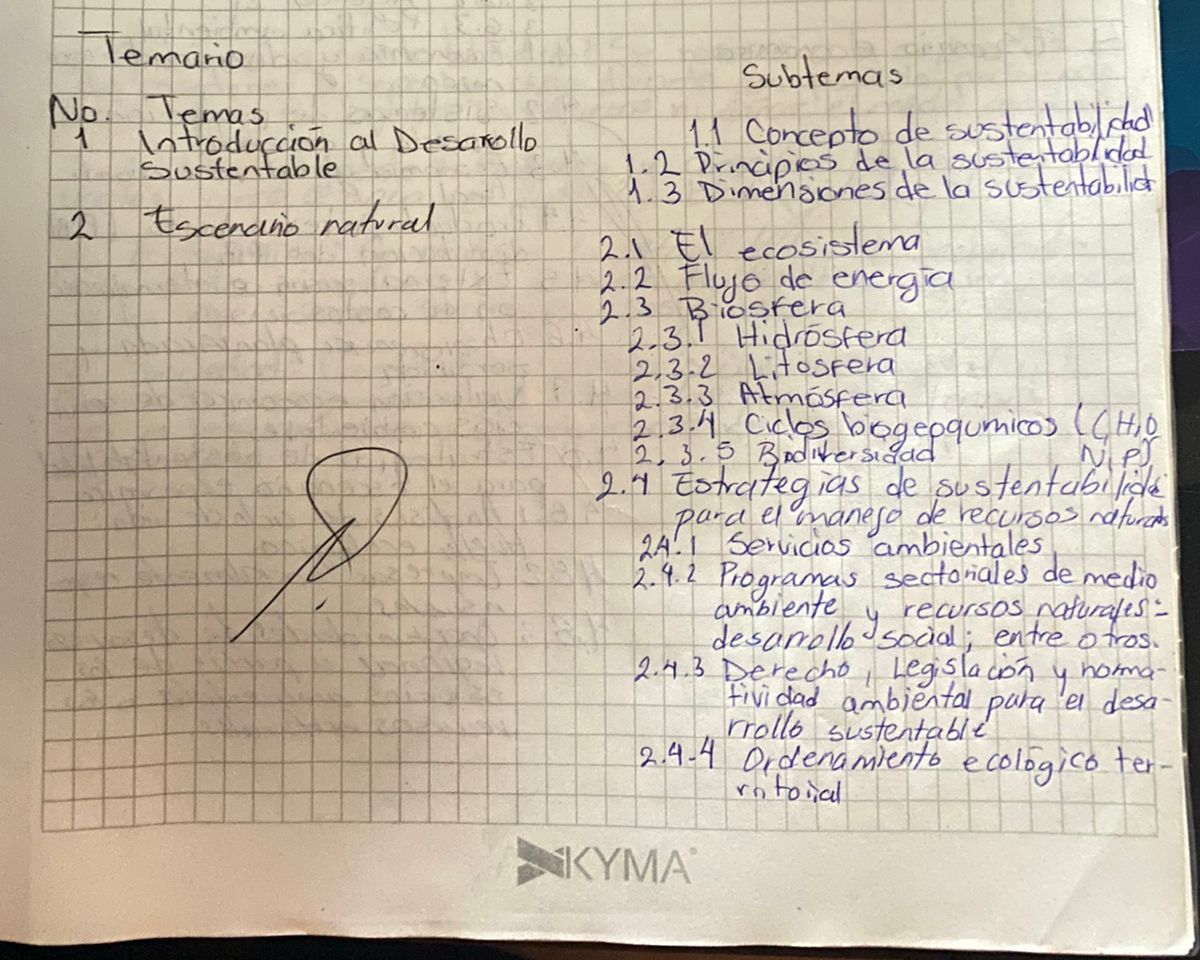 Temario
Subtemas
No. Temas
1 Introducción al Desarollo
Sustentable
1.1 Concepto de sustentabilidad
1.2 Principios de la sustentablidad
1.3 Dimensiones de la sustentabilid
2 Escenario natural
2.1 El ecosistema
2.2 Flujo de energía
2.3 Biosfera
2.3.1 Hidrósfera
2.3.2 Litosfera
2.3.3 Atmósfera
2.3.4 Ciclos biogeoquimicos (C,H,O
N,P,S
2.3.5 Biodiversidad
2.4 Estrategias de sustentabilida
para el manejo de recursos naturales
2.4.1 Servicios ambientales
2.4.2 Programas sectoriales de medio
ambiente y recursos naturales:
desarrollo social; entre otros.
2.4.3 Derecho, Legislación y norma-
tividad ambiental para el desa-
rrollo sustentable
2.4.4 Ordenamiento ecológico ter-
ritorial
KYMA